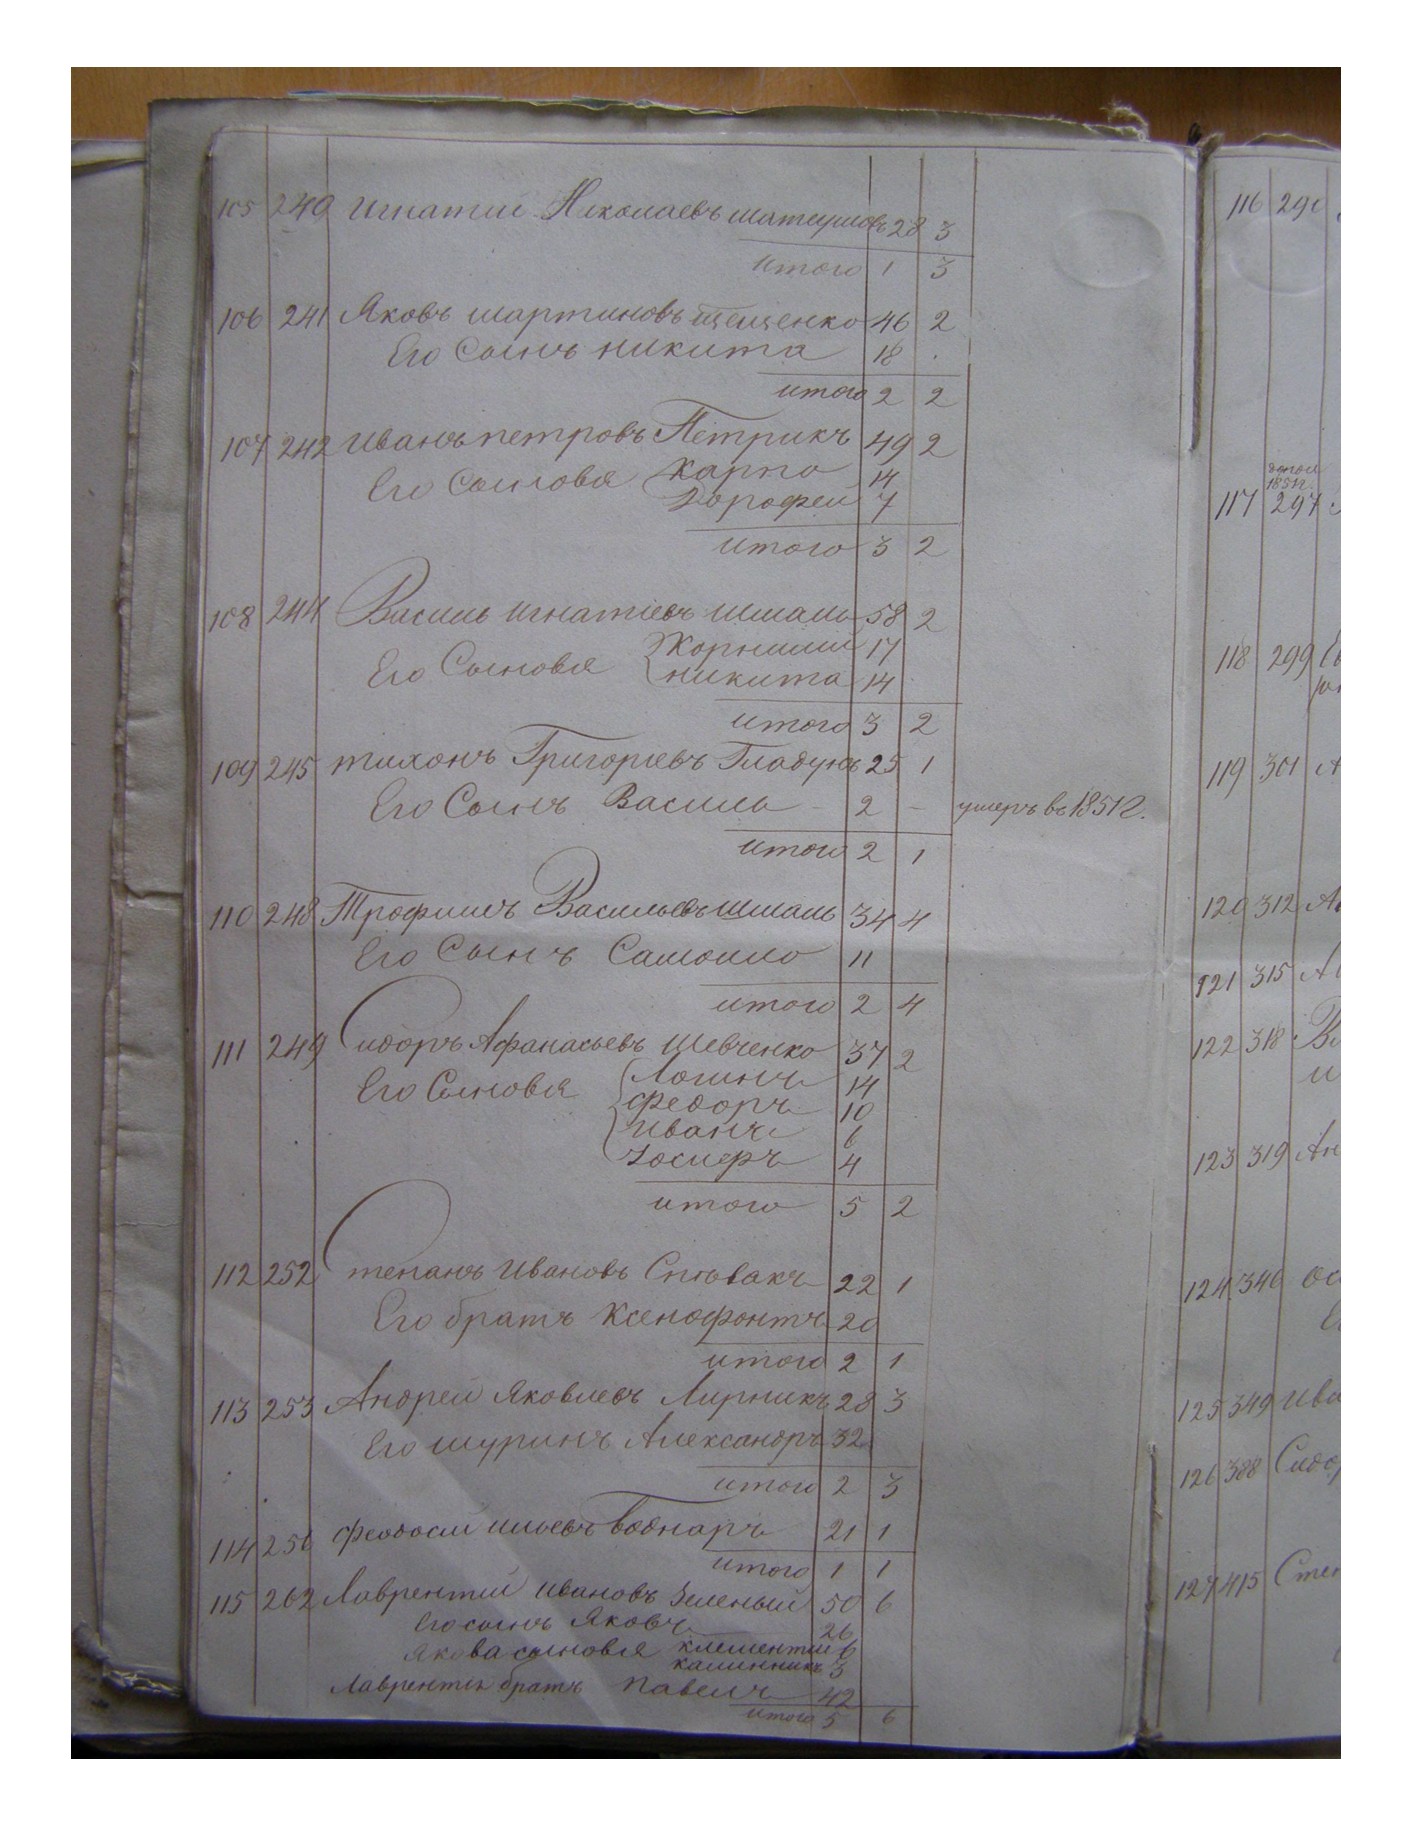 105 240 Игнатий Николаевъ 28 3
итого 1 3
106 241 Яковъ Мартиновъ Тещенко 46 2
Его Сынъ Никита 18 .
итого 2 2
107 242 Иванъ Петровъ Петрикъ 49 2
Его Сыновья Карпо 14
Дорофей 7
итого 3 2
108 244 Василь Игнатіевъ Шмаль 58 2
Его Сыновья Корнилий 17
Никита 14
итого 3 2
109 245 Тихонъ Григоріевъ Гладунъ 25 1
Его Сынъ Василь - 2 - умеръ въ 1851 г.
итого 2 1
110 248 Трофимъ Васильевъ Шмаль 34 4
Его Сынъ Самойло 11
итого 2 4
111 249 Сидоръ Афанасьевъ Шевченко 37 2
Его Сыновья Логинъ 14
Федоръ 10
Иванъ 6
Іосифъ 4
итого 5 2
112 252 Степанъ Ивановъ Співакъ 22 1
Его братъ Ксенофонтъ 20
итого 2 1
113 253 Андрей Яковлевъ Лирникъ 28 3
Его шуринъ Александръ 32
итого 2 3
114 256 Феодосій Ильевъ Боднаръ 21 1
итого 1 1
115 262 Лаврентій Ивановъ Зеленый 50 6
Его сынъ Яковъ 26
Якова сыновья Климентий 6
Калинникъ 3
Лаврентія братъ Павелъ 42
итого 5 6
116 291
1851 г.
117 297
118 299
119 301 А
120 312 Ан
121 315
122 318 В
и
123 319 Ан
124 346 Ос
125 349 Ива
126 388 Сидор
127 415 Степ